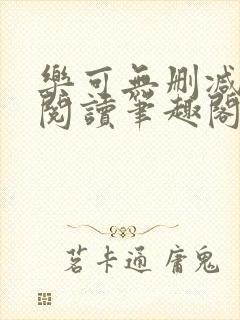 樂可無刪減
閱讀筆趣閣
茗卡通 庸鬼